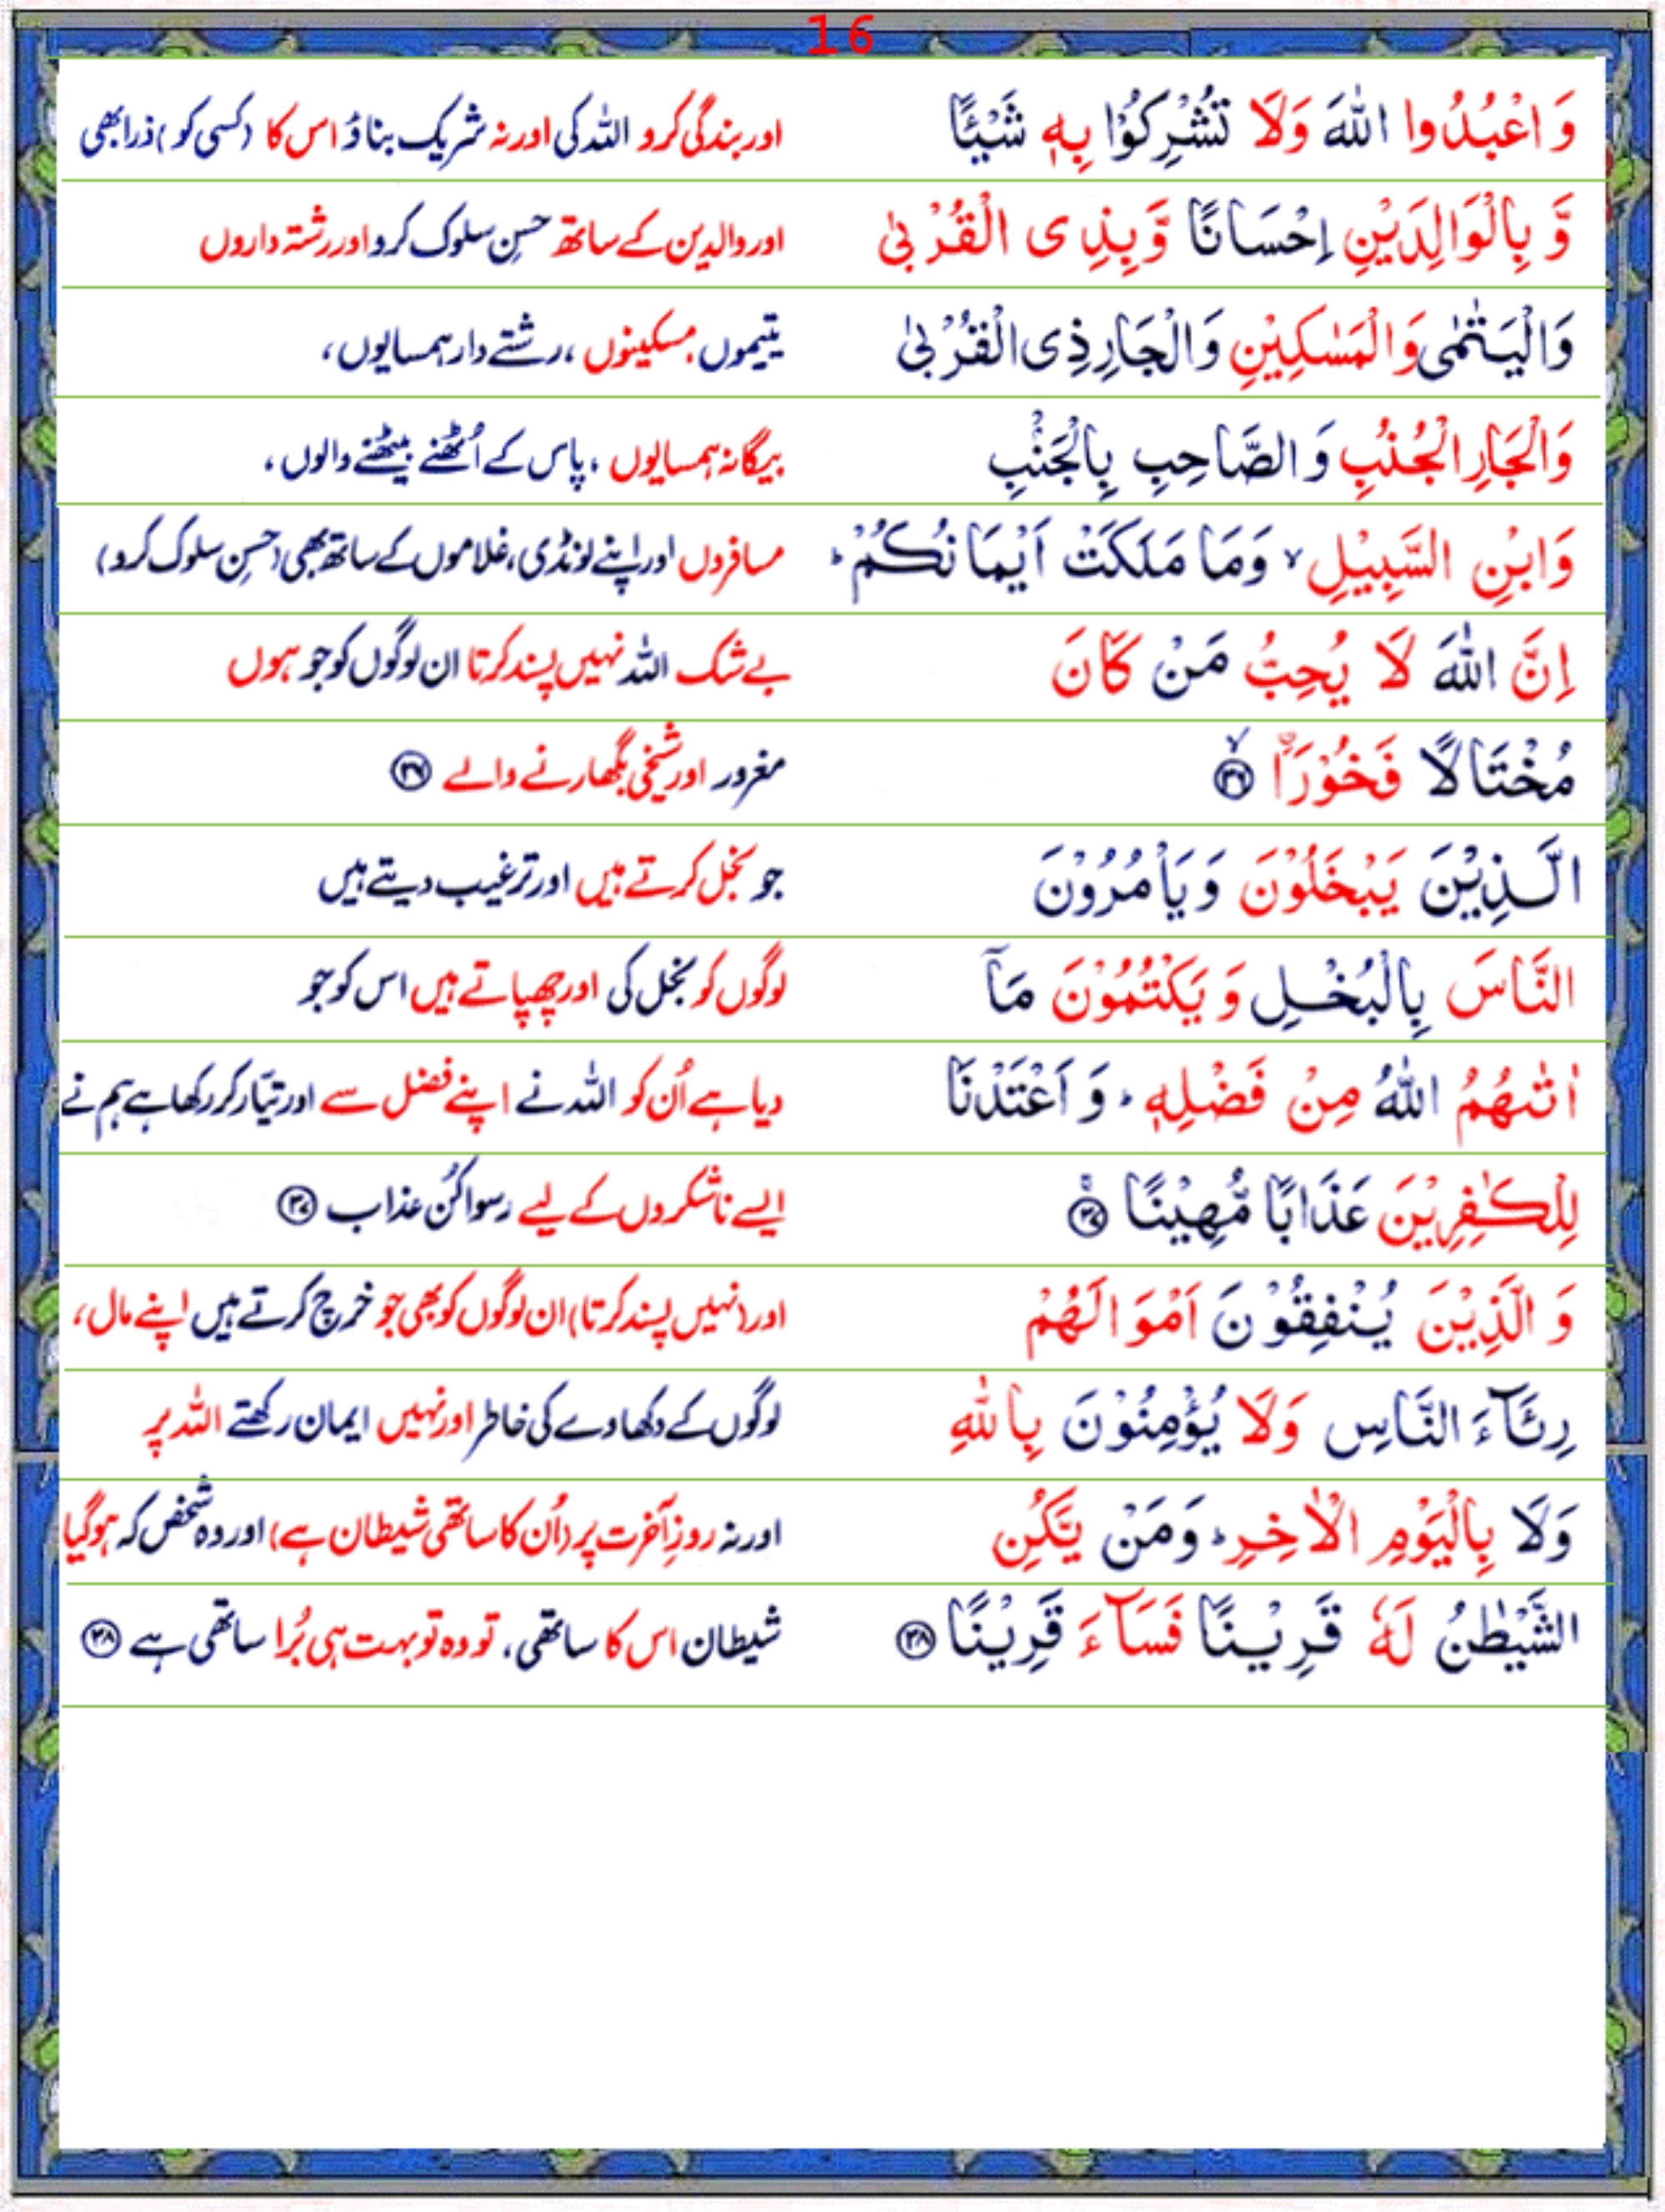 16
وَاعْبُدُوا اللّٰهَ وَلَا تُشْرِكُوْا بِهٖ شَيْئًا اور بندگی کرو اللہ کی اور نہ شریک بناؤ اس کا (کسی کو) ذرا بھی
وَّ بِالْوَالِدَيْنِ اِحْسَانًا وَّبِذِى الْقُرْبٰى اور والدین کے ساتھ حسنِ سلوک کرو اور رشتہ داروں
وَالْيَتٰمٰى وَالْمَسٰكِيْنِ وَالْجَارِ ذِى الْقُرْبٰى یتیموں، مسکینوں، رشتے دار ہمسایوں،
وَالْجَارِ الْجُنُبِ وَ الصَّاحِبِ بِالْجَنْۢبِ بیگانہ ہمسایوں، پاس کے اُٹھنے بیٹھنے والوں،
وَابْنِ السَّبِيْلِ ۙ وَمَا مَلَكَتْ اَيْمَانُكُمْ ؕ مسافروں اور اپنے لونڈی، غلاموں کے ساتھ بھی (حسنِ سلوک کرو)
اِنَّ اللّٰهَ لَا يُحِبُّ مَنْ كَانَ بے شک اللہ نہیں پسند کرتا ان لوگوں کو جو ہوں
مُخْتَالًا فَخُوْرًا ۙ﴿۳۶﴾ مغرور اور شیخی بگھارنے والے ﴿۳۶﴾
الَّذِيْنَ يَبْخَلُوْنَ وَيَاْمُرُوْنَ جو بخل کرتے ہیں اور ترغیب دیتے ہیں
النَّاسَ بِالْبُخْلِ وَ يَكْتُمُوْنَ مَاۤ لوگوں کو بخل کی اور چھپاتے ہیں اس کو جو
اٰتٰٮهُمُ اللّٰهُ مِنْ فَضْلِهٖ ؕ وَ اَعْتَدْنَا دیا ہے اُن کو اللہ نے اپنے فضل سے اور تیّار کر رکھا ہے ہم نے
لِلْكٰفِرِيْنَ عَذَابًا مُّهِيْنًا ۚ﴿۳۷﴾ ایسے ناشکروں کے لیے رسوا کُن عذاب ﴿۳۷﴾
وَ الَّذِيْنَ يُنْفِقُوْنَ اَمْوَالَهُمْ اور (نہیں پسند کرتا) ان لوگوں کو بھی جو خرچ کرتے ہیں اپنے مال،
رِئَآءَ النَّاسِ وَلَا يُؤْمِنُوْنَ بِاللّٰهِ لوگوں کے دکھاوے کی خاطر اور نہیں ایمان رکھتے اللہ پر
وَلَا بِالْيَوْمِ الْاٰخِرِ ؕ وَمَنْ يَّكُنِ اور نہ روزِ آخرت پر (اُن کا ساتھی شیطان ہے) اور وہ شخص کہ ہو گیا
الشَّيْطٰنُ لَهٗ قَرِيْنًا فَسَآءَ قَرِيْنًا ﴿۳۸﴾ شیطان اس کا ساتھی، تو وہ تو بہت ہی بُرا ساتھی ہے ﴿۳۸﴾